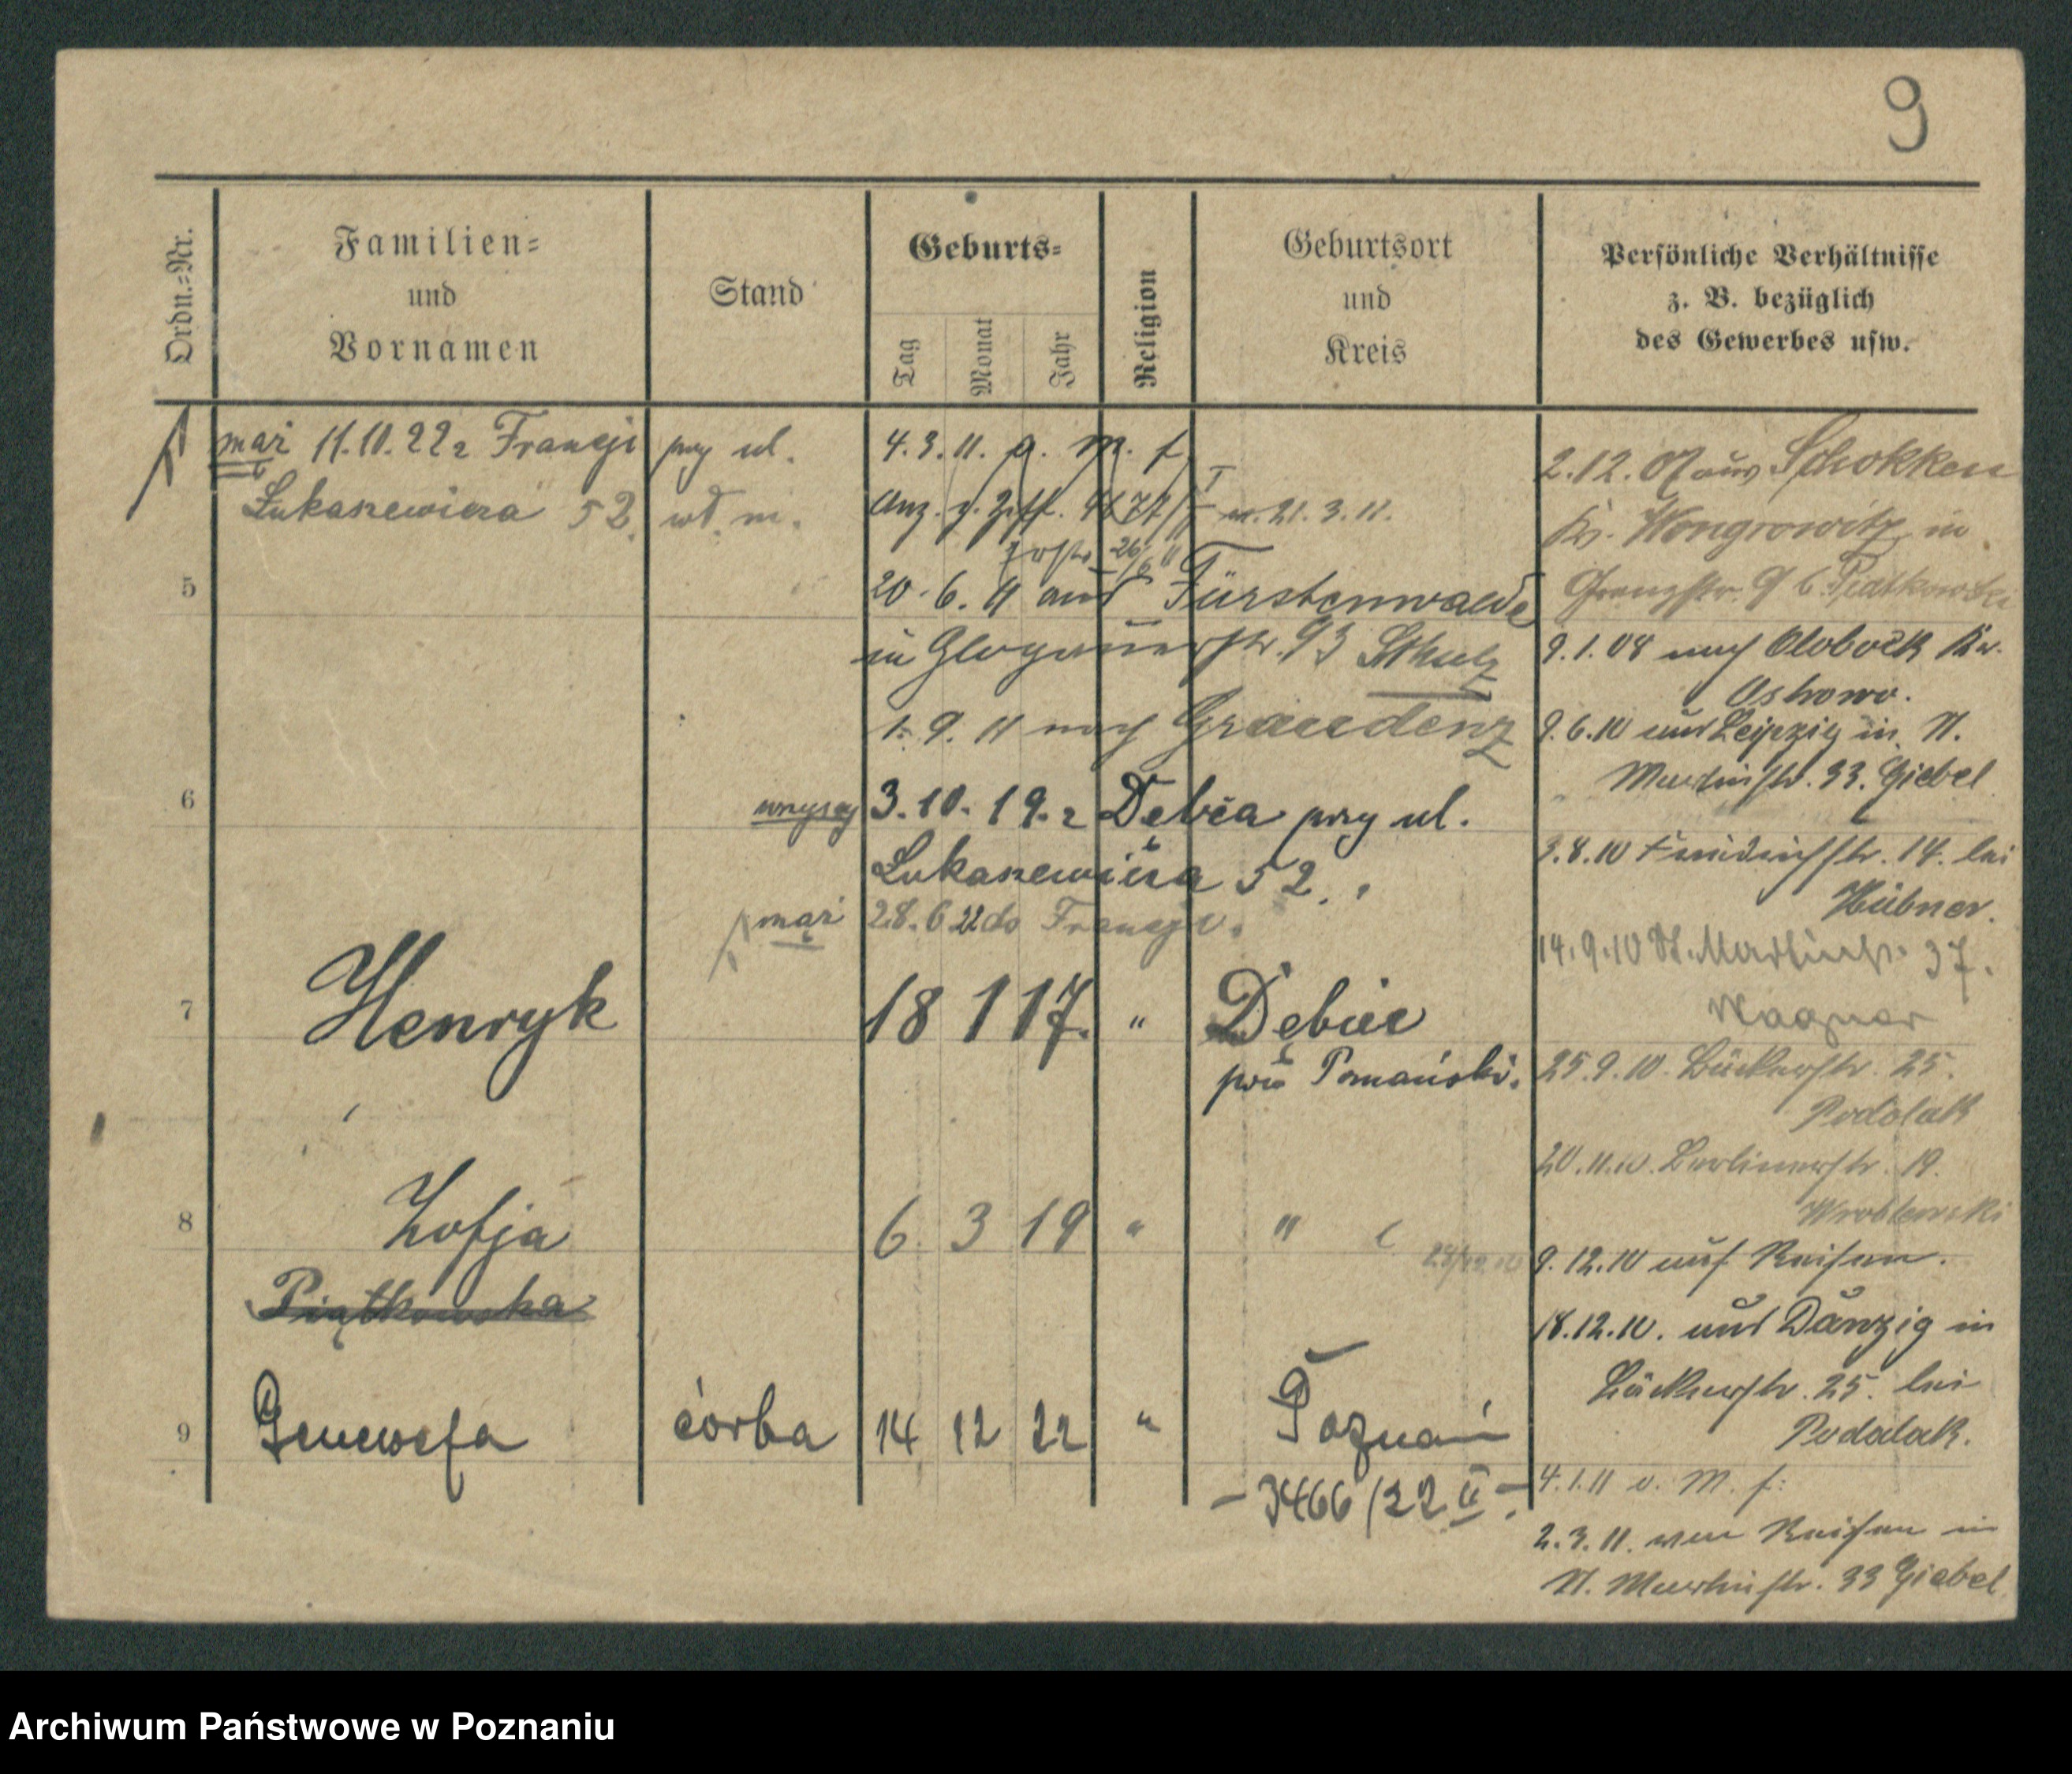 9
Ordn.=Nr.
Familien=
und
Vornamen
Stand
Geburts=
Tag
Monat
Jahr
Religion
Geburtsort
und
Kreis
Persönliche Verhältnisse
z. B. bezüglich
des Gewerbes usw.
mąż 11.10.22 z Francji przy ul.
Łukaszewicza 52. wł. m.
4.3.11. v. M. f.
Anz. z. 21.3.11.
20.6.11 aus Fürstenwalde
in Glogauerstr. 93 Schulz
1.9.11 nach Graudenz
wszyscy 3.10.19. z Dębca przy ul.
Łukaszewicza 52.
mąż 28.6.22 do Francji.
5
6
7 Henryk 18 1 17. " Dębiec
pow Poznański.
8 Zofja 6 3 19 " "
Piątkowska
9 Genewefa córka 14 12 22 " Poznań
- 3466/22 II -
2.12.07 aus Schokken
Kr. Wongrowitz in
Grenzstr. 9 b. Piatkowski
9.1.08 nach Olobock Kr.
Ostrowo.
9.6.10 aus Leipzig in St.
Martinstr. 33. Giebel
3.8.10 Friedrichstr. 14. bei
Hübner.
14.9.10 St. Martinstr. 37.
Wagner
25.9.10. Bäckerstr. 25.
Podolak
20.11.10. Berlinerstr. 19.
Wroblewski
9.12.10 auf Reisen.
18.12.10. aus Danzig in
Bäckerstr. 25. bei
Podolak.
4.1.11 v. M. f.
2.3.11. von Reisen in
St. Martinstr. 33 Giebel
Archiwum Państwowe w Poznaniu